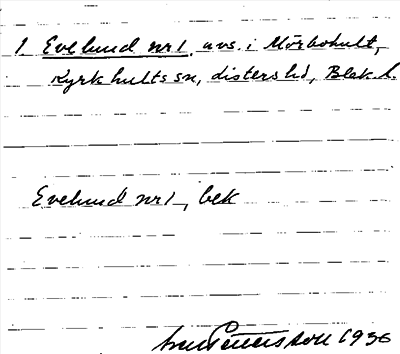 1 Evelund nr 1, avs. i Mörbohult,
Kyrkhults sn, Listers hd, Blek. l.
Evelund nr 1, bek
Pettersson 1936